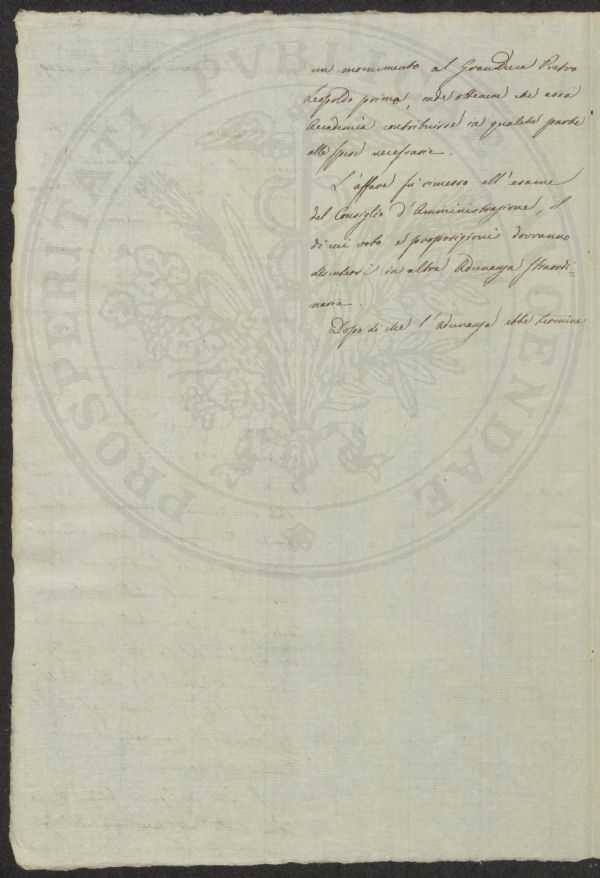 un monumento al GranDuca Pietro
Leopoldo primo, onde ottenere che essa
Accademia contribuisse in qualche parte
alle spese necessarie.
L'affare fù rimesso all'esame
del Consiglio d'Amministrazione, il
di cui voto e proposizioni dovranno
discutersi in altra Adunanza straordi=
naria.
Dopo di che l'adunanza ebbe termine
PROSPERITATI PVBLICAE AVGENDAE